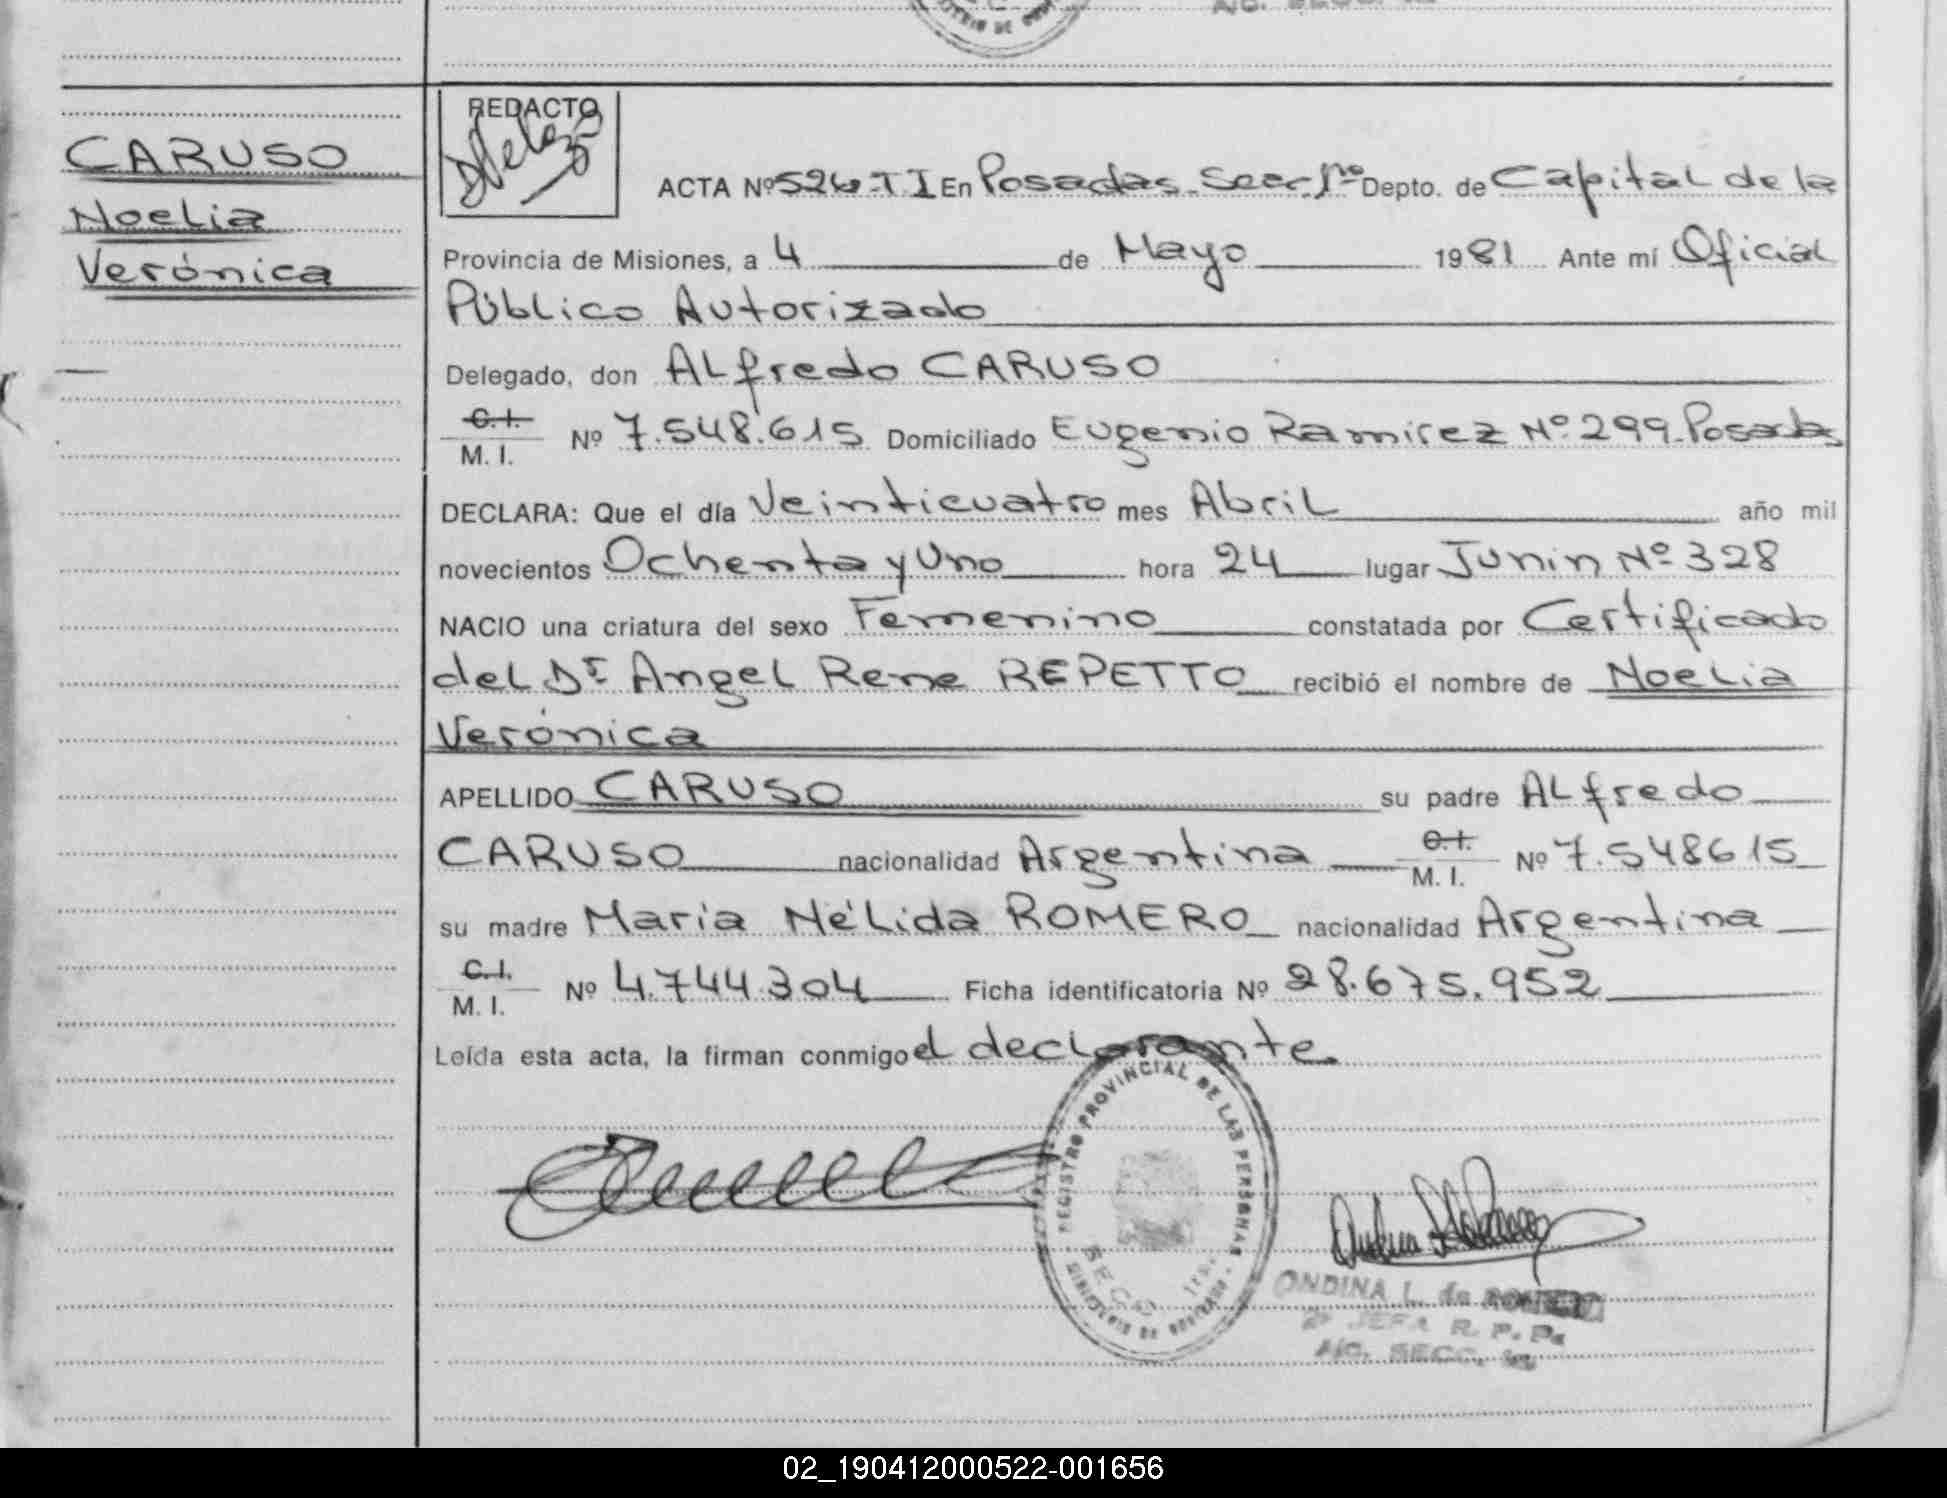 CARUSO
Noelia
Verónica
REDACTO
ACTA Nº 526-TI En Posadas Secc. 1ª Depto. de Capital de la
Provincia de Misiones, a 4 de Mayo 1981 Ante mí Oficial
Público Autorizado
Delegado, don ALfredo CARUSO
C.I.
M. I. Nº 7.548.615 Domiciliado Eugenio Ramirez Nº 299 Posadas
DECLARA: Que el día Veinticuatro mes Abril año mil
novecientos Ochenta y Uno hora 24 lugar Junin Nº 328
NACIO una criatura del sexo Femenino constatada por Certificado
del Dr Angel Rene REPETTO recibió el nombre de Noelia
Verónica
APELLIDO CARUSO su padre ALfredo
CARUSO nacionalidad Argentina C.I. M. I. Nº 7.548615
su madre María Nélida ROMERO nacionalidad Argentina
C.I.
M. I. Nº 4.744.304 Ficha identificatoria Nº 28.675.952
Leída esta acta, la firman conmigo el declarante.
REGISTRO PROVINCIAL DE LAS PERSONAS
SECC. 1ra.
MINISTERIO DE GOBIERNO
ONDINA L. de
2ª JEFA R. P. P.
A/C. SECC. 1a
02_190412000522-001656